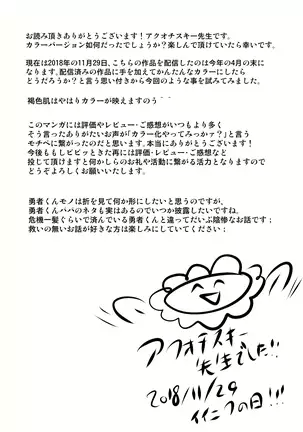 お読み頂きありがとうございます！アクオチスキー先生です。
カラーバージョン如何だったでしょうか？楽しんで頂けていたら幸いです。
現在は2018年の11月29日、こちらの作品を配信したのは今年の4月の末に
なります。配信済みの作品に手を加えてかんたんなカラーにしたら
どうだろうか？と言う思い付きから今回のような事を試みてみました。
褐色肌はやはりカラーが映えますのう＾＾
このマンガには評価やレビュー・ご感想がいつもより多く
そう言ったありがたいお声が「カラー化やってみっか？」と言う
モチベに繋がったのだと思います。本当にありがとうございます！
今後ももしビビッときた時には評価・レビュー・ご感想など
投じて頂けますと何かしらのお礼や活動に繋がる活力となりますので
どうぞよろしくお願いいたします。
勇者くんモノは折を見て何か形にしたいと思うのですが、
勇者くんパパのネタも実はあるのでいつか披露したいですね。
危機一髪ぐらいで済んでいる勇者くんと違ってだいぶ陰惨なお話です；
救いの無いお話が好きな方は楽しみにしていてください；
アクオチスキー
先生でした!!
2018/11/29
イイニクの日!!!